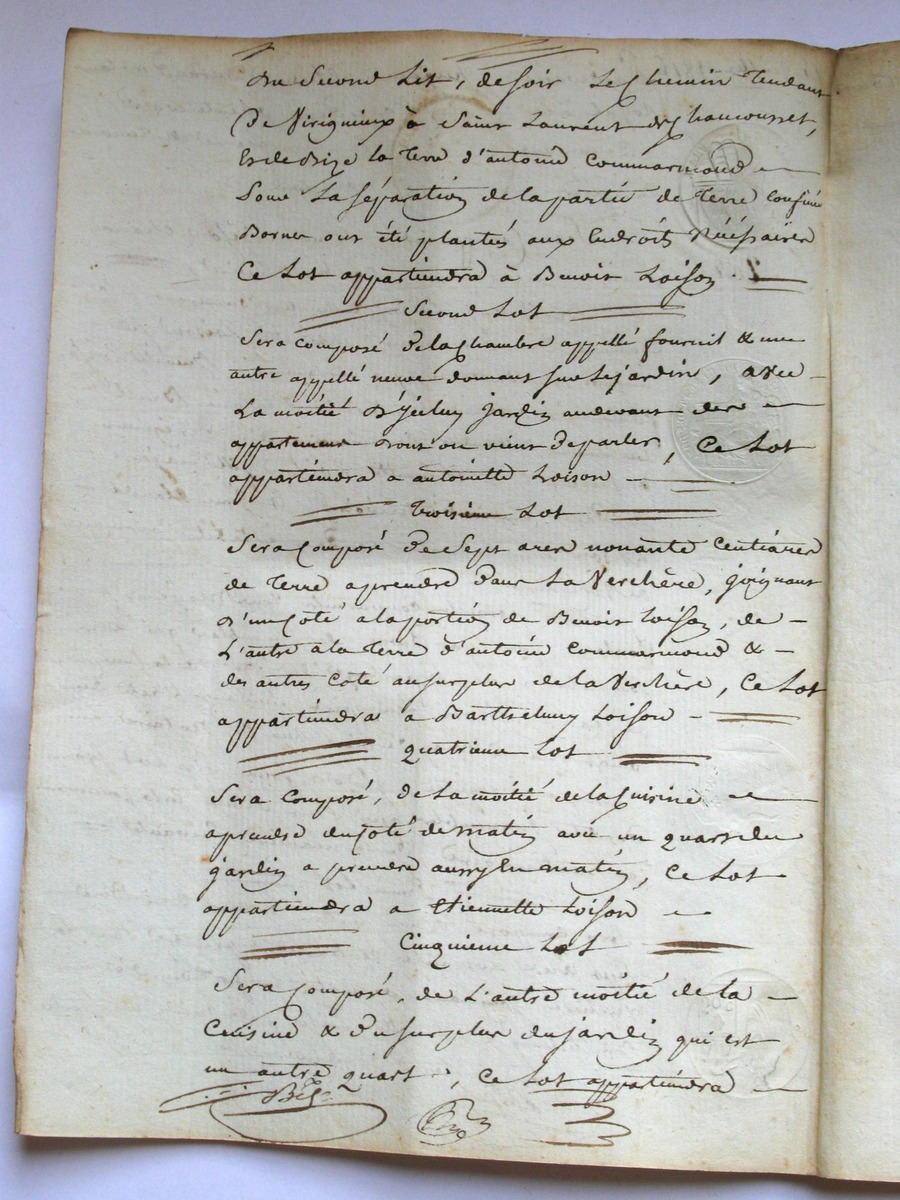 Du Second Lit, de soir le Chemin tendant
De Virigneux à Saint Laurent de Chamousset,
Et de Bize la terre d'antoine Commarmond
Pour la séparation de la partie de terre confiné
Bornes ont été plantées aux Endroits Nécéssaires
Ce Lot appartiendra à Benoit Loison.
Second Lot
Sera composé de la Chambre appellé fournil & une
autre appellé neuve donnant sur le jardin, avec
La moitié D'Iceluy jardin audevant des
appartemens dont on vient de parler, Ce Lot
appartiendra a antoinette Loison
Troisième Lot
Sera Composé de Sept ares nonante Centiares
de terre a prendre dans La Verchère, joignant
D'un Coté a la portion de Benoit Loison, de
L'autre à la terre d'antoine Commarmond &
des autres Coté au surplus de la Verchère, Ce Lot
appartiendra a Barthelemy Loison
quatrieme Lot
Sera Composé, de La moitié de la Cuisine
a prendre du Coté de matin avec un quart du
jardin a prendre aussy du matin, Ce Lot
appartiendra a Etiennette Loison
Cinquieme Lot
Sera Composé, de L'autre moitié de la
Cuisine & Du Surplus du jardin qui est
un autre quart, Ce Lot appartiendra